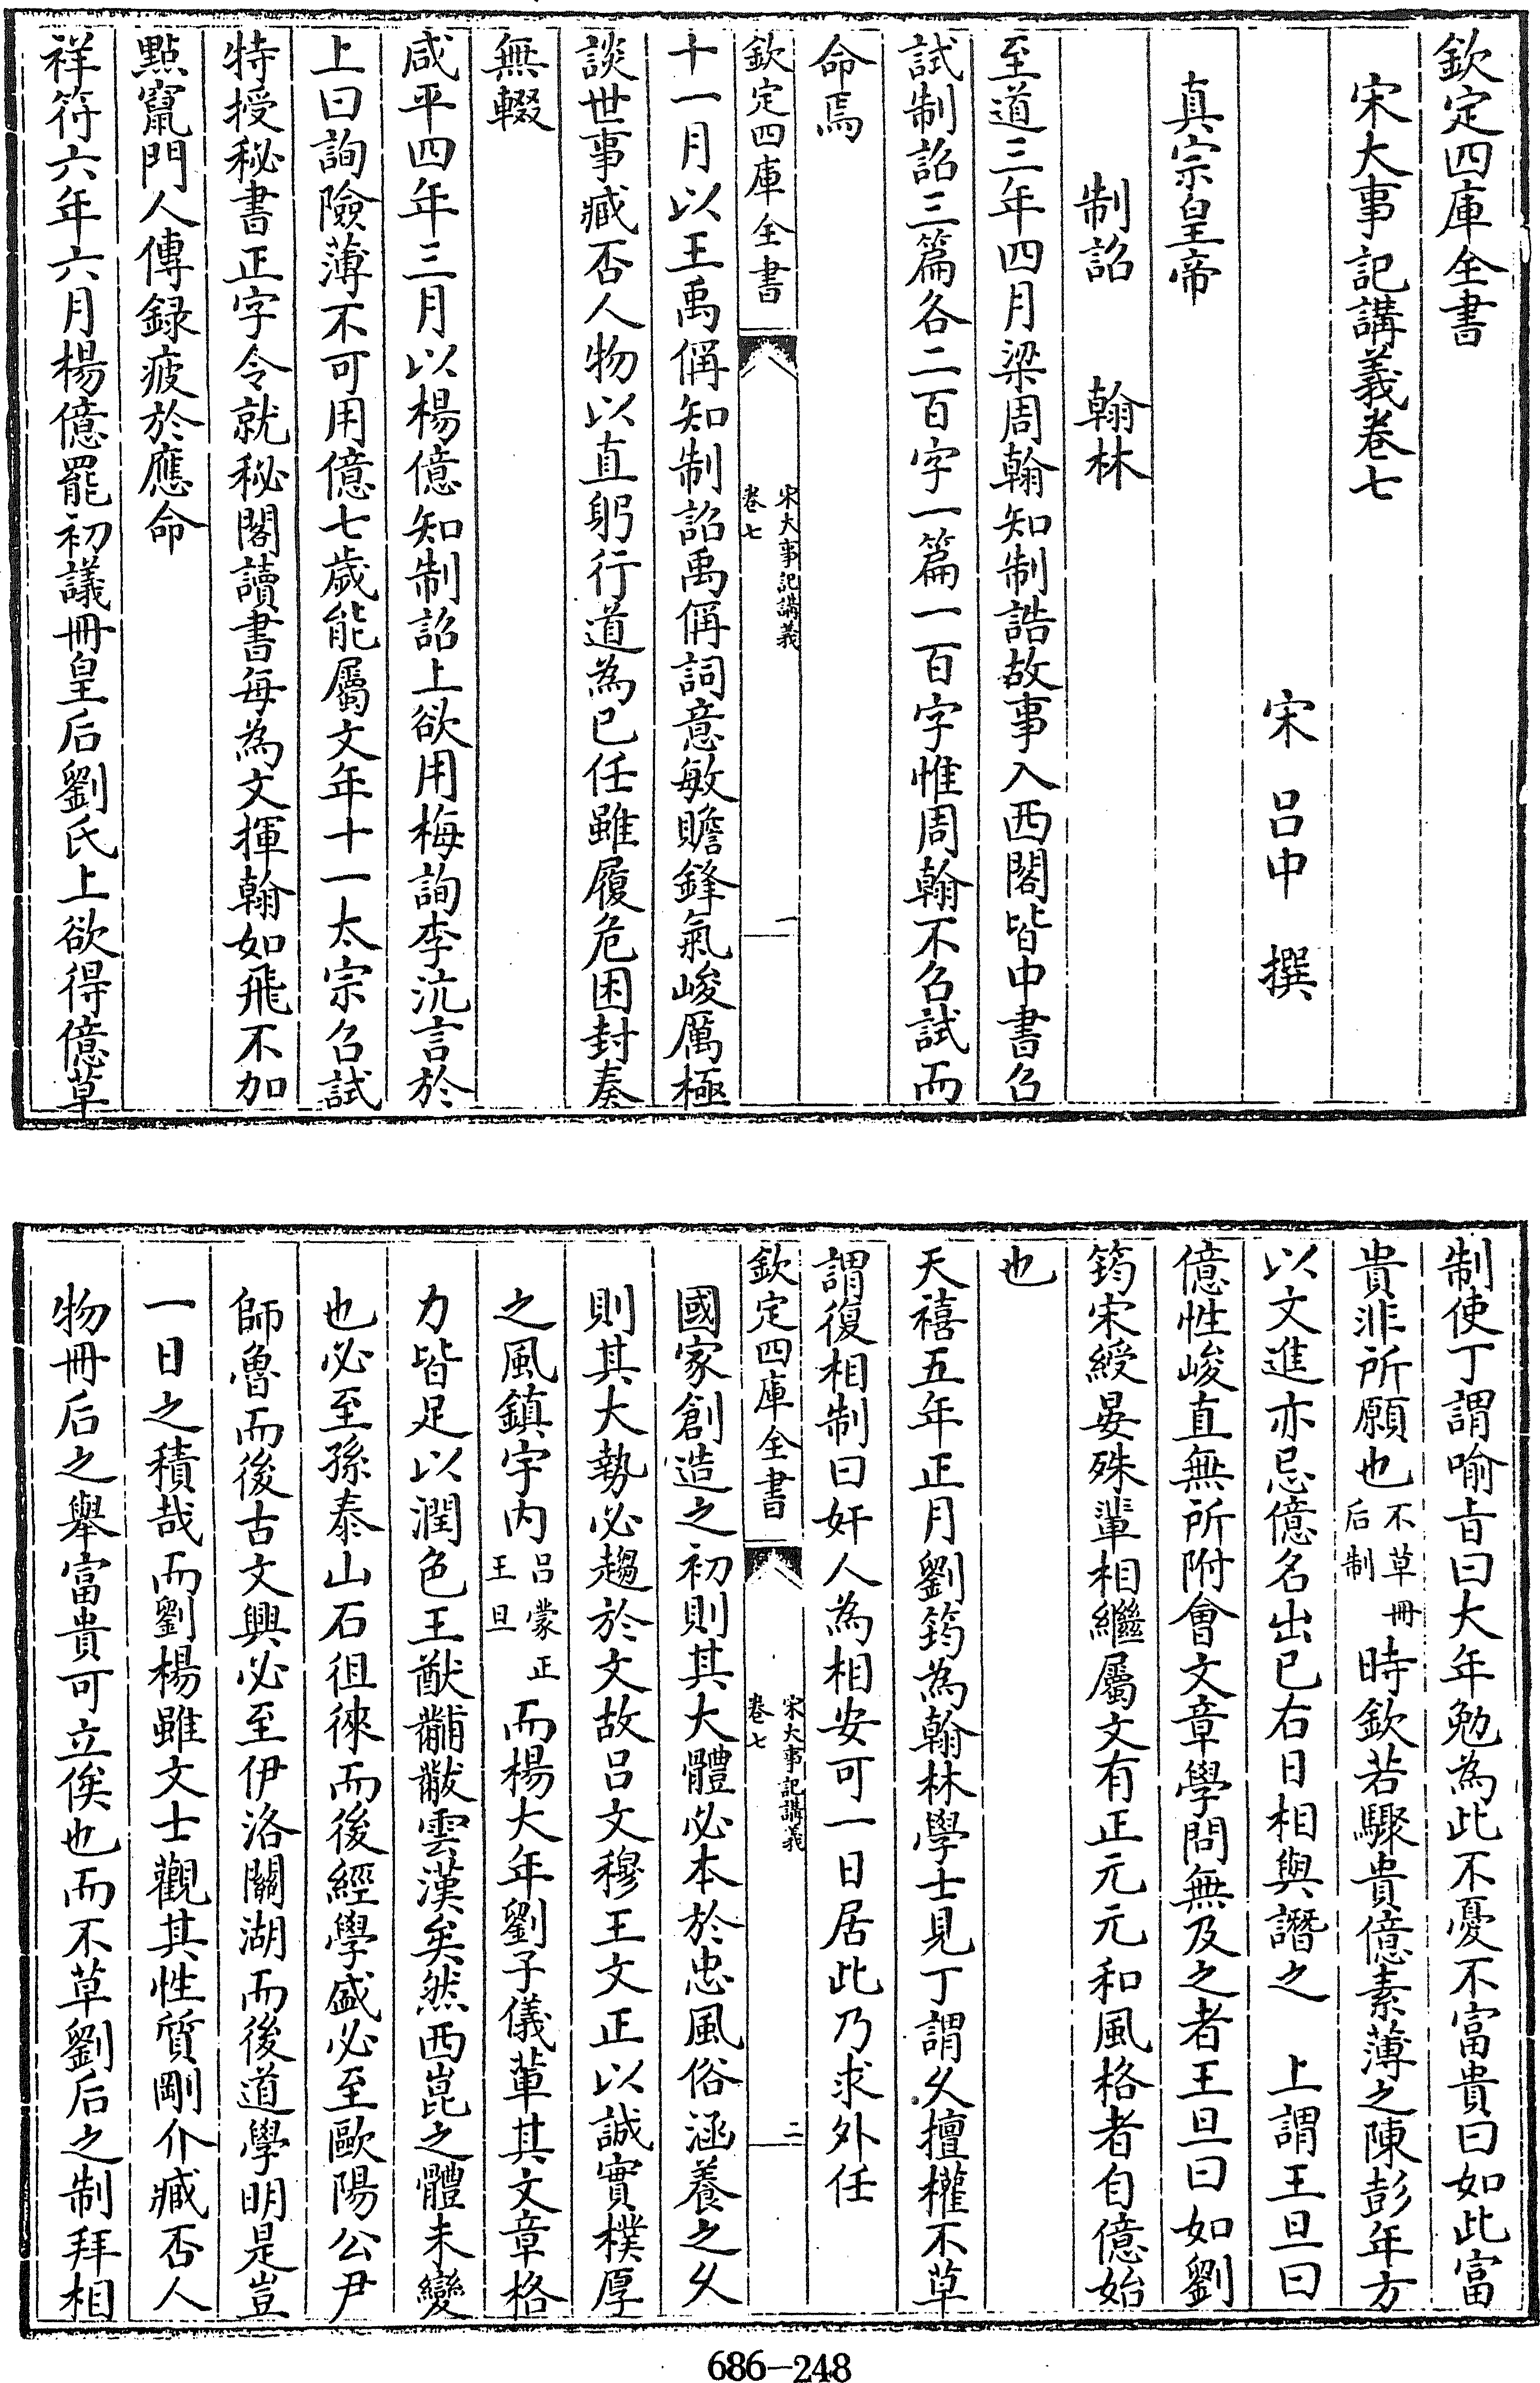 欽定四庫全書
宋大事記講義卷七
宋 呂中 撰
真宗皇帝
制詔 翰林
至道三年四月梁周翰知制誥故事入西閣皆中書召
試制詔三篇各二百字一篇一百字惟周翰不召試而
命焉
欽定四庫全書
宋大事記講義
卷七
一
十一月以王禹偁知制詔禹偁詞意敏贍鋒氣峻厲極
談世事臧否人物以直躬行道為已任雖履危困封奏
無輟
咸平四年三月以楊億知制詔上欲用梅詢李沆言於
上曰詢險薄不可用億七歲能屬文年十一太宗召試
特授秘書正字令就秘閣讀書每為文揮翰如飛不加
點竄門人傳録疲於應命
祥符六年六月楊億罷初議冊皇后劉氏上欲得億草
制使丁謂喻旨曰大年勉為此不憂不富貴曰如此富
貴非所願也不草冊后制時欽若驟貴億素薄之陳彭年方
以文進亦忌億名出已右日相與譖之 上謂王旦曰
億性峻直無所附會文章學問無及之者王旦曰如劉
筠宋綬晏殊輩相繼屬文有正元元和風格者自億始
也
天禧五年正月劉筠為翰林學士見丁謂乆擅權不草
謂復相制曰奸人為相安可一日居此乃求外任
欽定四庫全書
宋大事記講義
卷七
二
國家創造之初則其大體必本於忠風俗涵養之乆
則其大勢必趨於文故呂文穆王文正以誠實樸厚
之風鎮宇内呂蒙正王旦而楊大年劉子儀輩其文章格
力皆足以潤色王猷黼黻雲漢矣然西崑之體未變
也必至孫泰山石徂徠而後經學盛必至歐陽公尹
師魯而後古文興必至伊洛關湖而後道學明是豈
一日之積哉而劉楊雖文士觀其性質剛介臧否人
物冊后之舉富貴可立俟也而不草劉后之制拜相
686-248